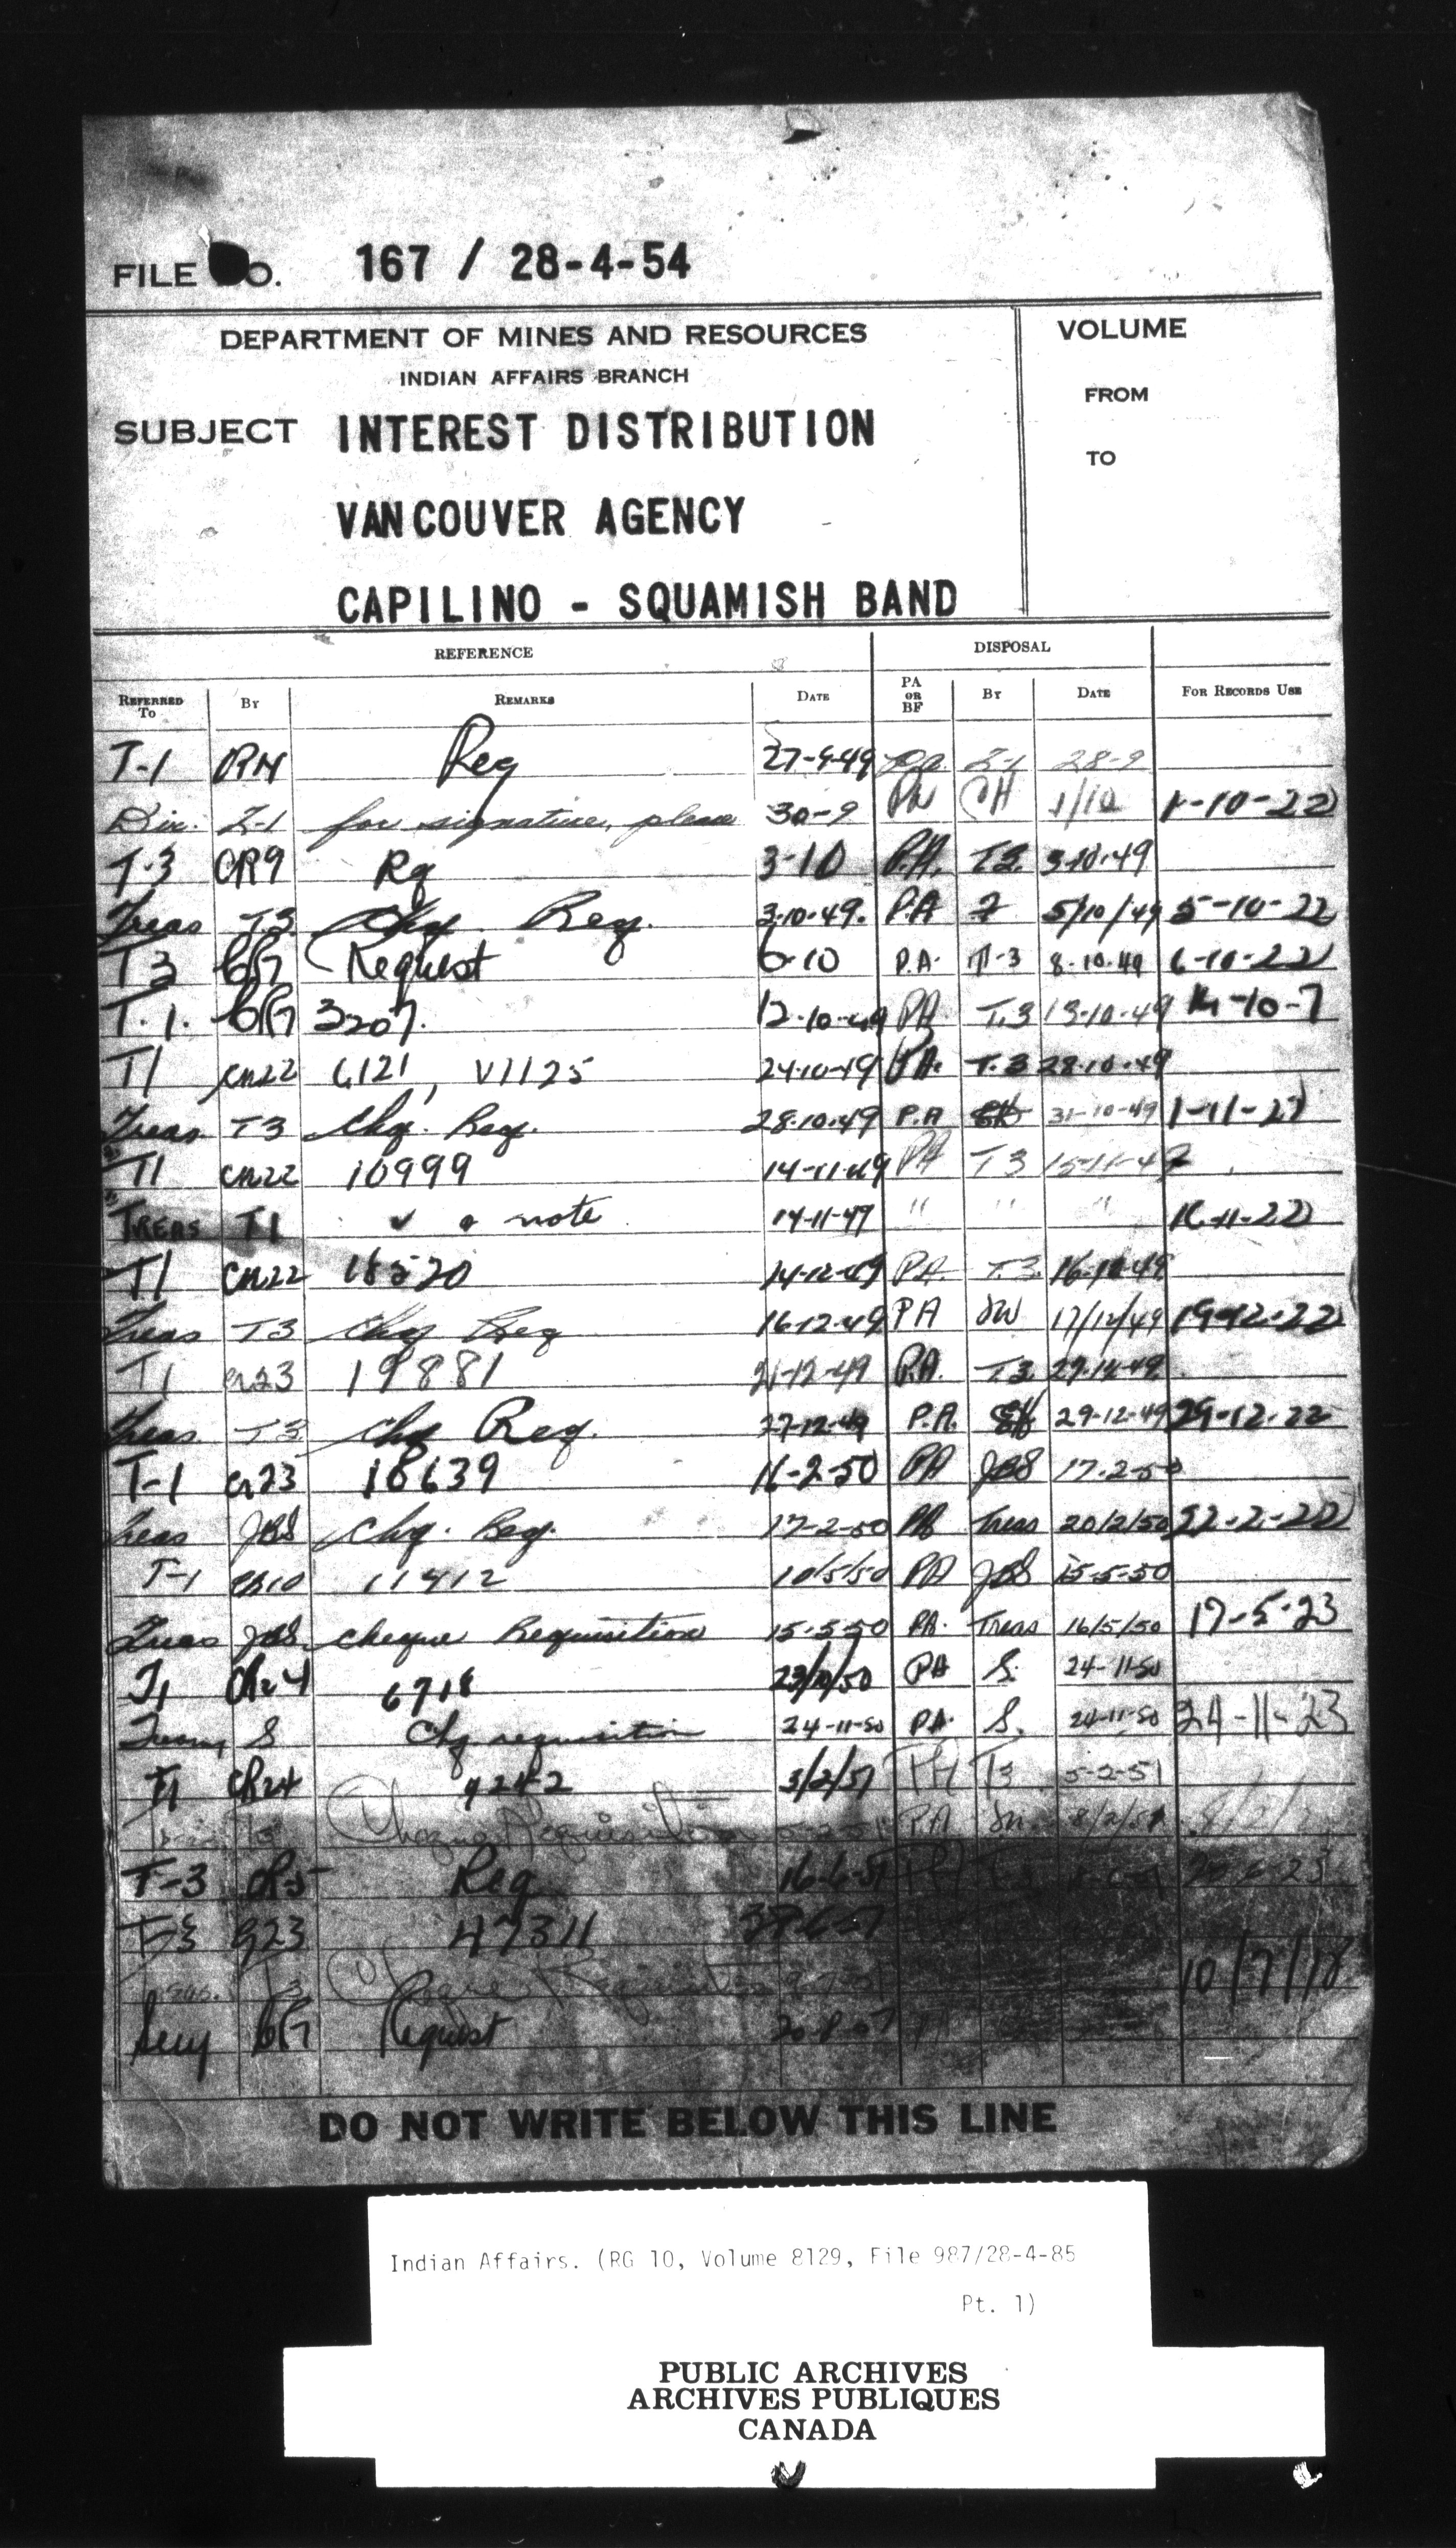 FILE NO. 167 / 28-4-54
DEPARTMENT OF MINES AND RESOURCES
INDIAN AFFAIRS BRANCH
SUBJECT INTEREST DISTRIBUTION
VANCOUVER AGENCY
CAPILINO - SQUAMISH BAND
VOLUME
FROM
TO
REFERENCE DISPOSAL
REFERRED TO BY REMARKS DATE PA OR BF BY DATE FOR RECORDS USE
T-1 Req 27-9-49 28-9
Dir. Z-1 for signature, please 30-9 1/10 1-10-22
T-3 CR9 Rq 3-10 P.A. T.3. 3-10-49
Treas T3 Chq. Req. 3-10-49. P.A 5/10/49 5-10-22
T3 Request 6-10 P.A. T-3 8-10-49 6-10-22
T.1. 3207. 12-10-49 PA T.3 13-10-49 14-10-7
T1 CR22 6121, V1125 24-10-49 P.A. T.3 28-10-49
Treas T3 Chq. Req. 28-10-49 P.A 31-10-49 1-11-22
T1 CR22 10999 14-11-49 PA T3 15-11-49
TREAS T1 note 14-11-49 " " " 16-11-22
T1 CR22 18520 14-12-49 PA. T.3. 16-12-49
Treas T3 Chq Req 16-12-49 PA JW 17/12/49 19-12-22
T1 CR23 19881 21-12-49 P.A. T3 27-12-49
Treas T3 Chq Req. 27-12-49 P.A. 29-12-49 29-12-22
T-1 CR23 18639 16-2-50 PA JBS 17-2-50
Treas JBS Chq. Req. 17-2-50 PA Treas 20/2/50 22-2-22
T-1 CR10 11412 10/5/50 PA JBS 15-5-50
Treas JBS. Cheque Requisition 15-5-50 PA. Treas 16/5/50 17-5-23
T1 CR24 6718 23/11/50 PA S. 24-11-50
Treas S Chq requisition 24-11-50 PA. S. 24-11-50 24-11-23
T1 CR24 9242 3/2/51 PA T3 5-2-51
T3 Cheque Requisition 5-2-51 PA 8/2/51
T-3 CR5 Req 16-6-51 PA T3
T-3 47311
T3 Cheque Requisition 10/7/18
Secy Request
DO NOT WRITE BELOW THIS LINE
Indian Affairs. (RG 10, Volume 8129, File 987/28-4-85
Pt. 1)
PUBLIC ARCHIVES
ARCHIVES PUBLIQUES
CANADA